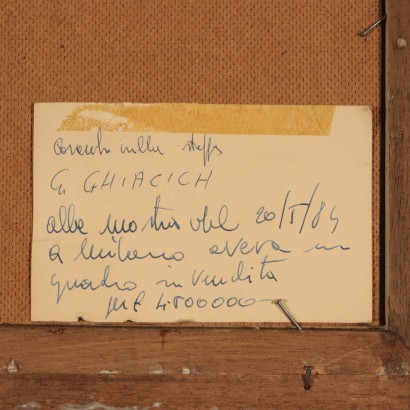 Cosacchi nella steppa
G. GHIACICH
alla mostra del 20/I/84
a Milano aveva un
quadro in vendita
per £ 4800000